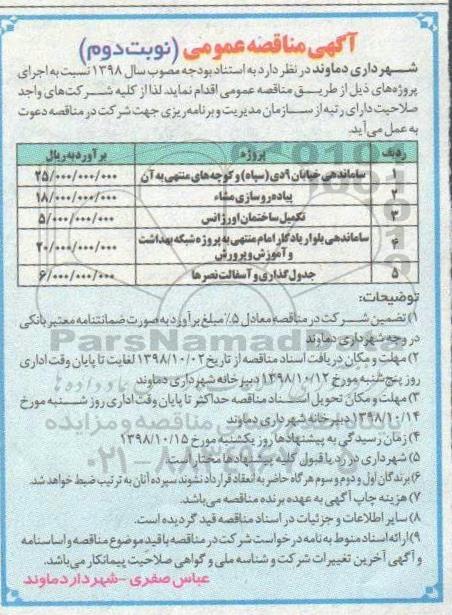 آگهی مناقصه عمومی (نوبت دوم)
شهرداری دماوند در نظر دارد به استناد بودجه مصوب سال ۱۳۹۸ نسبت به اجرای
پروژه‌های ذیل از طریق مناقصه عمومی اقدام نماید. لذا از کلیه شرکت‌های واجد
صلاحیت دارای رتبه از سازمان مدیریت و برنامه ریزی جهت شرکت در مناقصه دعوت
به عمل می آید.
ردیف پروژه برآورد به ریال
۱ ساماندهی خیابان ۹دی (سپاه) و کوچه‌های منتهی به آن ۲۵/۰۰۰/۰۰۰/۰۰۰
۲ پیاده‌روسازی مشاء ۱۸/۰۰۰/۰۰۰/۰۰۰
۳ تکمیل ساختمان اورژانس ۵/۰۰۰/۰۰۰/۰۰۰
۴ ساماندهی بلوار یادگار امام منتهی به پروژه شبکه بهداشت
و آموزش و پرورش ۲۰/۰۰۰/۰۰۰/۰۰۰
۵ جدول گذاری و آسفالت نصرها ۶/۰۰۰/۰۰۰/۰۰۰
توضیحات:
۱) تضمین شرکت در مناقصه معادل ۵٪ مبلغ برآورد به صورت ضمانتنامه معتبر بانکی
در وجه شهرداری دماوند
۲) مهلت و مکان دریافت اسناد مناقصه از تاریخ ۱۳۹۸/۱۰/۰۲ لغایت تا پایان وقت اداری
روز پنج شنبه مورخ ۱۳۹۸/۱۰/۱۲ دبیرخانه شهرداری دماوند
۳) مهلت و مکان تحویل اسناد مناقصه حداکثر تا پایان وقت اداری روز شنبه مورخ
۱۳۹۸/۱۰/۱۴ دبیرخانه شهرداری دماوند
۴) زمان رسیدگی به پیشنهادها روز یکشنبه مورخ ۱۳۹۸/۱۰/۱۵
۵) شهرداری در رد یا قبول کلیه پیشنهادها مختار است.
۶) برندگان اول و دوم و سوم هرگاه حاضر به انعقاد قرارداد نشوند سپرده آنان به ترتیب ضبط خواهد شد.
۷) هزینه چاپ آگهی به عهده برنده مناقصه می‌باشد.
۸) سایر اطلاعات و جزئیات در اسناد مناقصه قید گردیده است.
۹) ارائه اسناد منوط به نامه درخواست شرکت در مناقصه با قید موضوع مناقصه و اساسنامه
و آگهی آخرین تغییرات شرکت و شناسه ملی و گواهی صلاحیت پیمانکار می‌باشد.
عباس صفری - شهردار دماوند
ParsNamadData